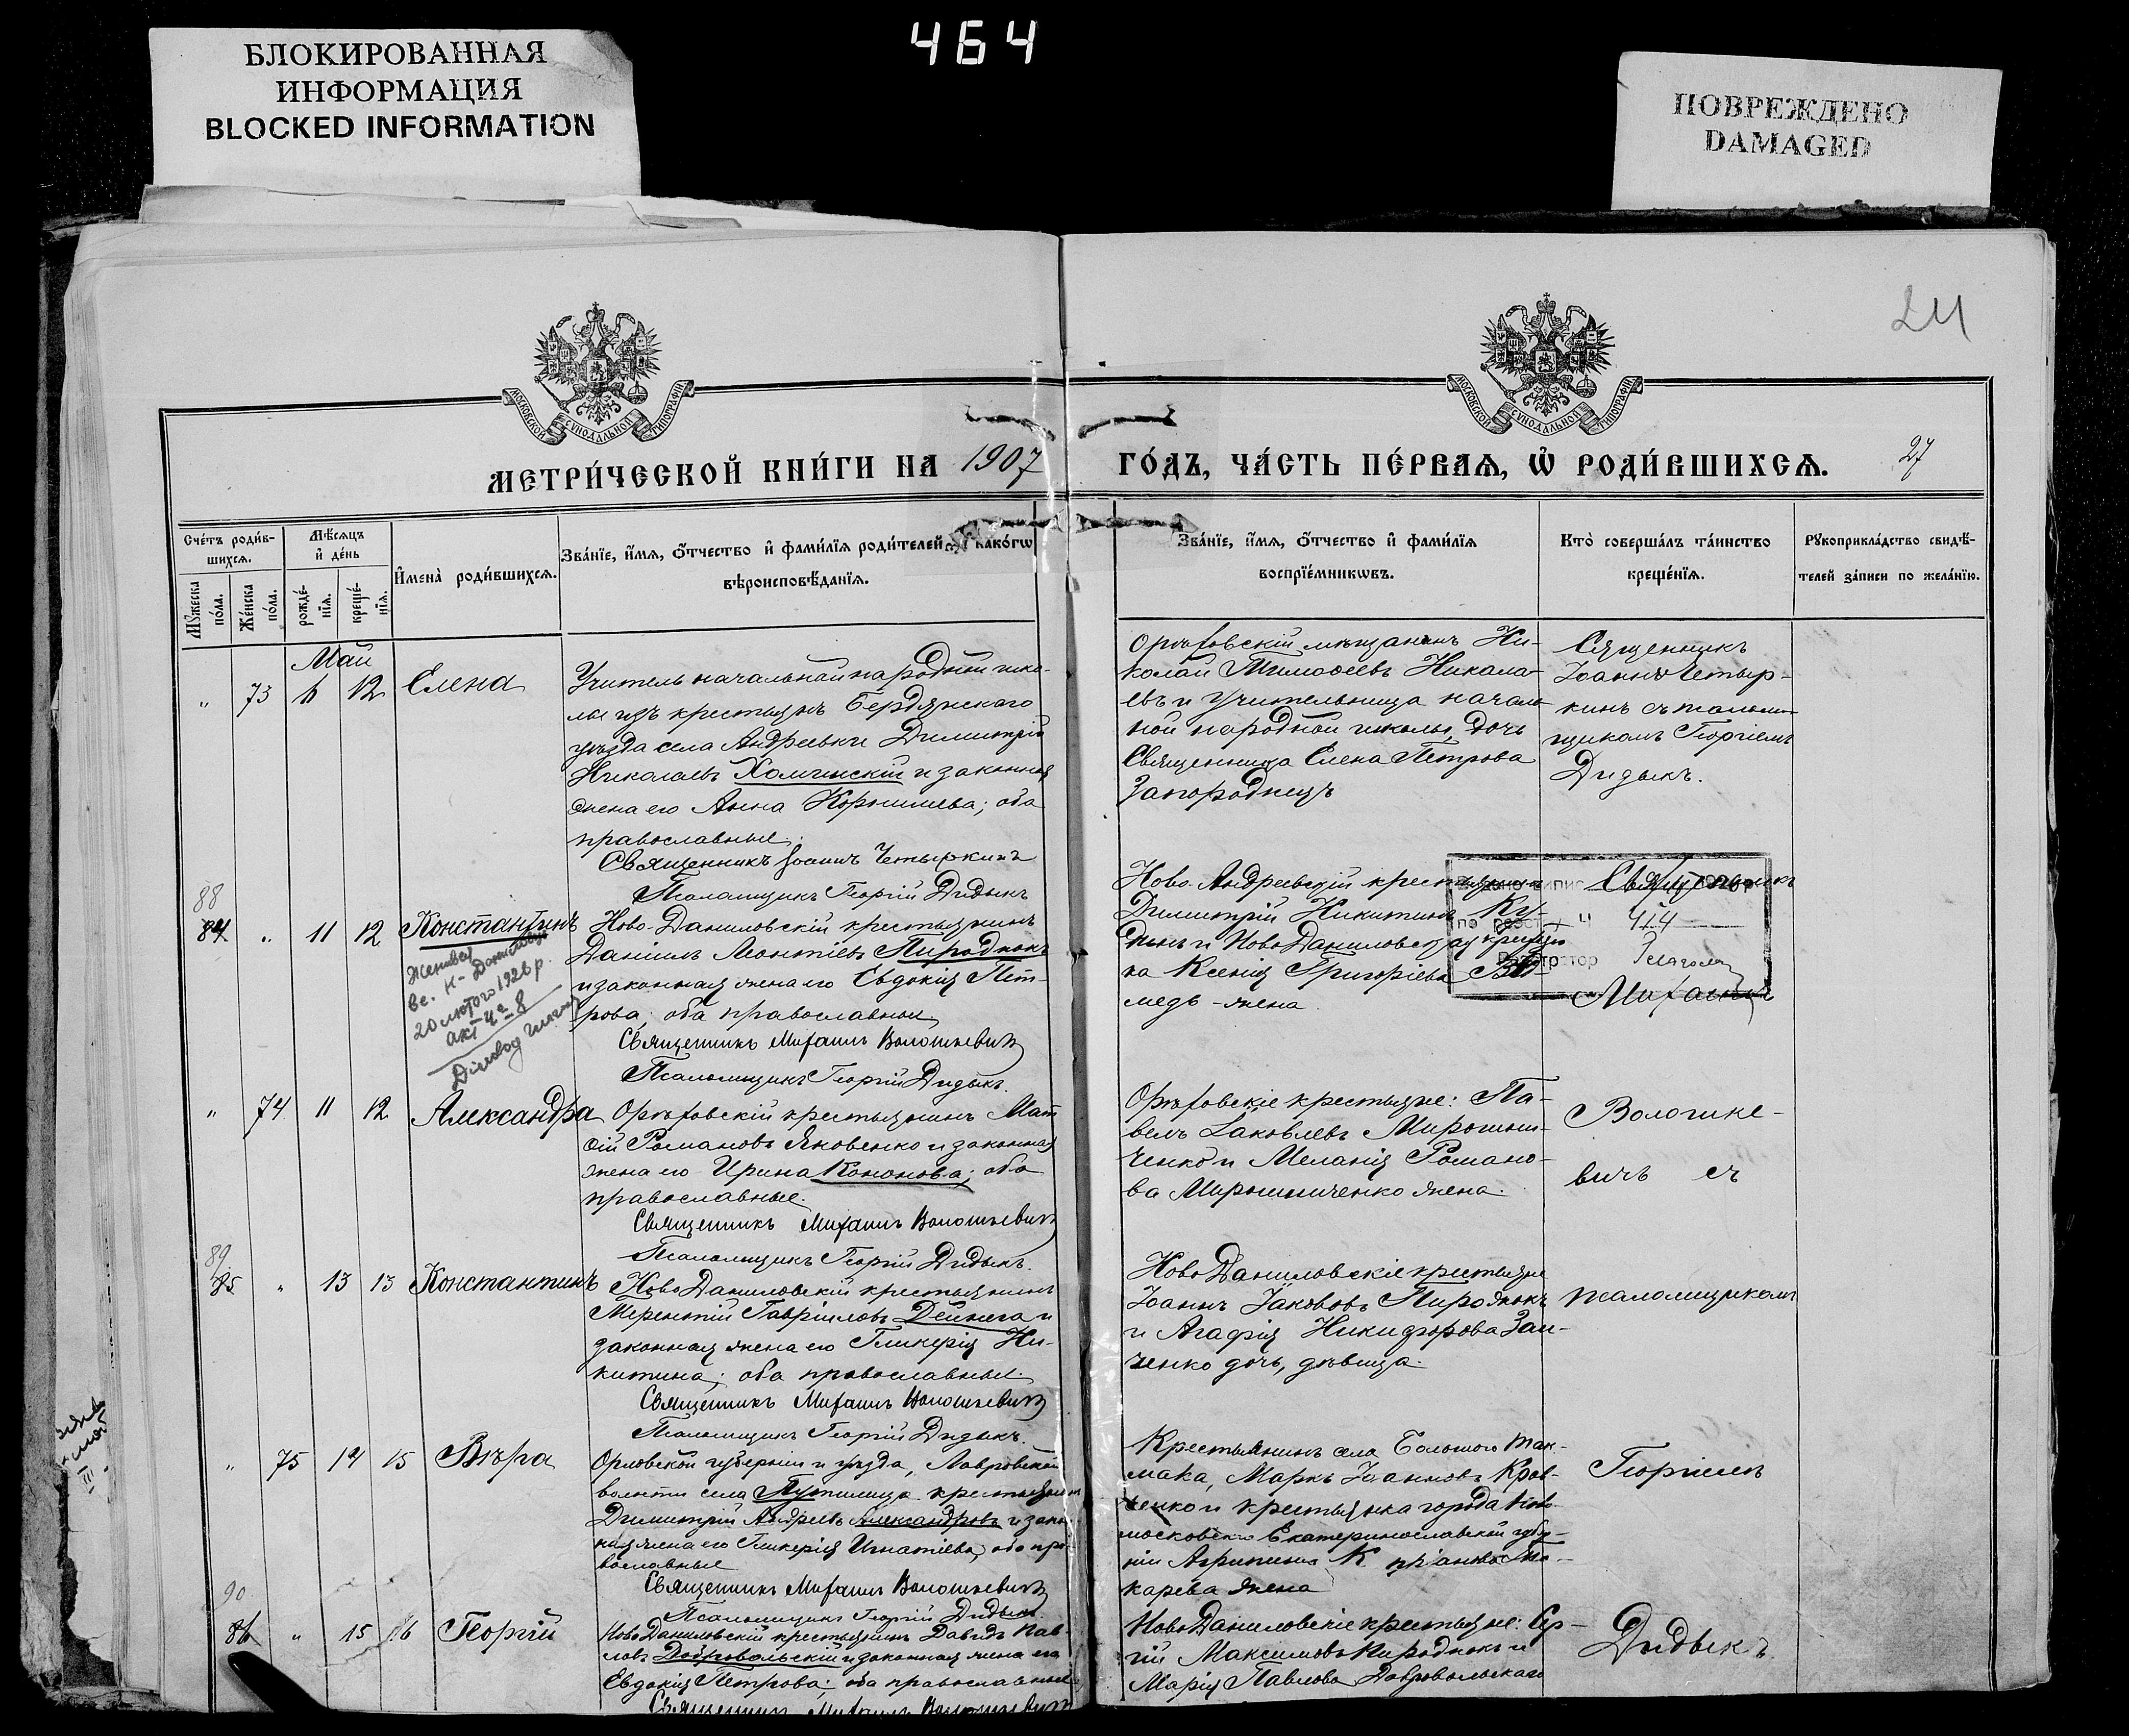 464
БЛОКИРОВАННАЯ
ИНФОРМАЦИЯ
BLOCKED INFORMATION
ПОВРЕЖДЕНО
DAMAGED
24
МОСКОВСКОЙ СѴНОДАЛЬНОЙ ТИПОГРАФІИ
МОСКОВСКОЙ СѴНОДАЛЬНОЙ ТИПОГРАФІИ
МЕТРИ́ЧЕСКОЙ КНИ́ГИ НА 1907 ГО́ДЪ, ЧА́СТЬ ПЕ́РВАѦ, Ѡ РОДИ́ВШИХСѦ.
27
Сче́тъ роди́в-
шихсѧ.
Мꙋ́жеска по́ла.
Же́нска по́ла.
Мѣ́сѧцъ
и҆ де́нь
рожде́-нїѧ.
креще́-нїѧ.
И҆мена̀ роди́вшихсѧ.
Зва́нїе, и҆́мѧ, ѻ҆́тчество и҆ фами́лїѧ роди́телей, и҆ како́гѡ
вѣроисповѣ́данїѧ.
Зва́нїе, и҆́мѧ, ѻ҆́тчество и҆ фами́лїѧ
воспрїе́мникѡвъ.
Кто̀ соверша́лъ та́инство
креще́нїѧ.
Рꙋкоприкла́дство свидѣ́-
телей за́писи по жела́нїю.
Май
" 73 6 12 Елена
Учитель начальной народной шко-
лы изъ крестьянъ Бердянскаго
уѣзда села Андреевки Димитрій
Николаевъ Холчинскій и законная
жена его Анна Корнилиева; оба
православные.
Священникъ Іоаннъ Четыркинъ
Псаломщикъ Георгій Дидыкъ
Орѣховскій мѣщанинъ Ни-
колай Тимофеевъ Никола-
евъ и Учительница началь-
ной народной школы, дочь
Священника Елена Петрова
Загороднецъ
Священникъ
Іоаннъ Четыр-
кинъ съ псалом-
щикомъ Георгіемъ
Дидыкъ.
88
84 " 11 12 Константинъ
Женивсь
вс. Н-Данилівці
20 лютого 1926 р.
акт ч. 8
Діловод
Ново-Даниловскій крестьянинъ
Даніилъ Леонтіевъ Пироднокъ
и законная жена его Евдокія Пет-
рова; оба православные
Священникъ Михаилъ Волошкевичъ
Псаломщикъ Георгій Дидыкъ.
Ново-Андреевскій крестьянинъ
Димитрій Никитинъ Ку-
динъ и Ново Даниловская крестьян
ка Ксенія Григоріева
медь - жена
по реєстру ч 414
Реєстратор
Священникъ
Михаилъ
" 74 11 12 Александра
Орѣховскій крестьянинъ Мат
ѳій Романовъ Яковенко и законная
жена его Ирина Кононова; оба
православные.
Священникъ Михаилъ Волошкевичъ
Псаломщикъ Георгій Дидыкъ.
Орѣховскіе крестьяне: Па-
велъ Іаковлевъ Мирошни-
ченко и Меланія Романо-
ва Мирошниченко жена.
Волошке-
вичъ съ
89
85 " 13 13 Константинъ
Ново Даниловскій крестьянинъ
Терентій Гавріиловъ Дейнега и
законная жена его Гликерія Ни-
китина; оба православные.
Священникъ Михаилъ Волошкевичъ
Псаломщикъ Георгій Дидыкъ.
Ново Даниловскіе крестьяне
Іоаннъ Іакововъ Пироднокъ
и Агафія Никифорова Заи-
ченко дочь, дѣвица.
псаломщикомъ
" 75 14 15 Вѣра
Орловской губерніи и уѣзда, Лавровской
волости села Путимца крестьянинъ
Димитрій Андреевъ Александровъ и закон-
ная жена его Гликерія Игнатіева, оба пра-
вославные
Священникъ Михаилъ Волошкевичъ
Псаломщикъ Георгій Дидыкъ.
Крестьянинъ села Большого Ток-
мака, Маркъ Іоанновъ Крав-
ченко и крестьянка города Ново
московска Екатеринославской губер-
ніи Агрипина
карева жена
Георгіемъ
90
86 " 15 16 Георгій
Ново Даниловскій крестьянинъ Давидъ Пав-
ловъ Добровольскій и законная жена его
Евдокія Петрова; оба православные
Священникъ Михаилъ Волошкевичъ
Ново Даниловскіе крестьяне: Сер-
гій Максимовъ Пироднокъ и
Марія Павлова Добровольскаго
Дидыкъ